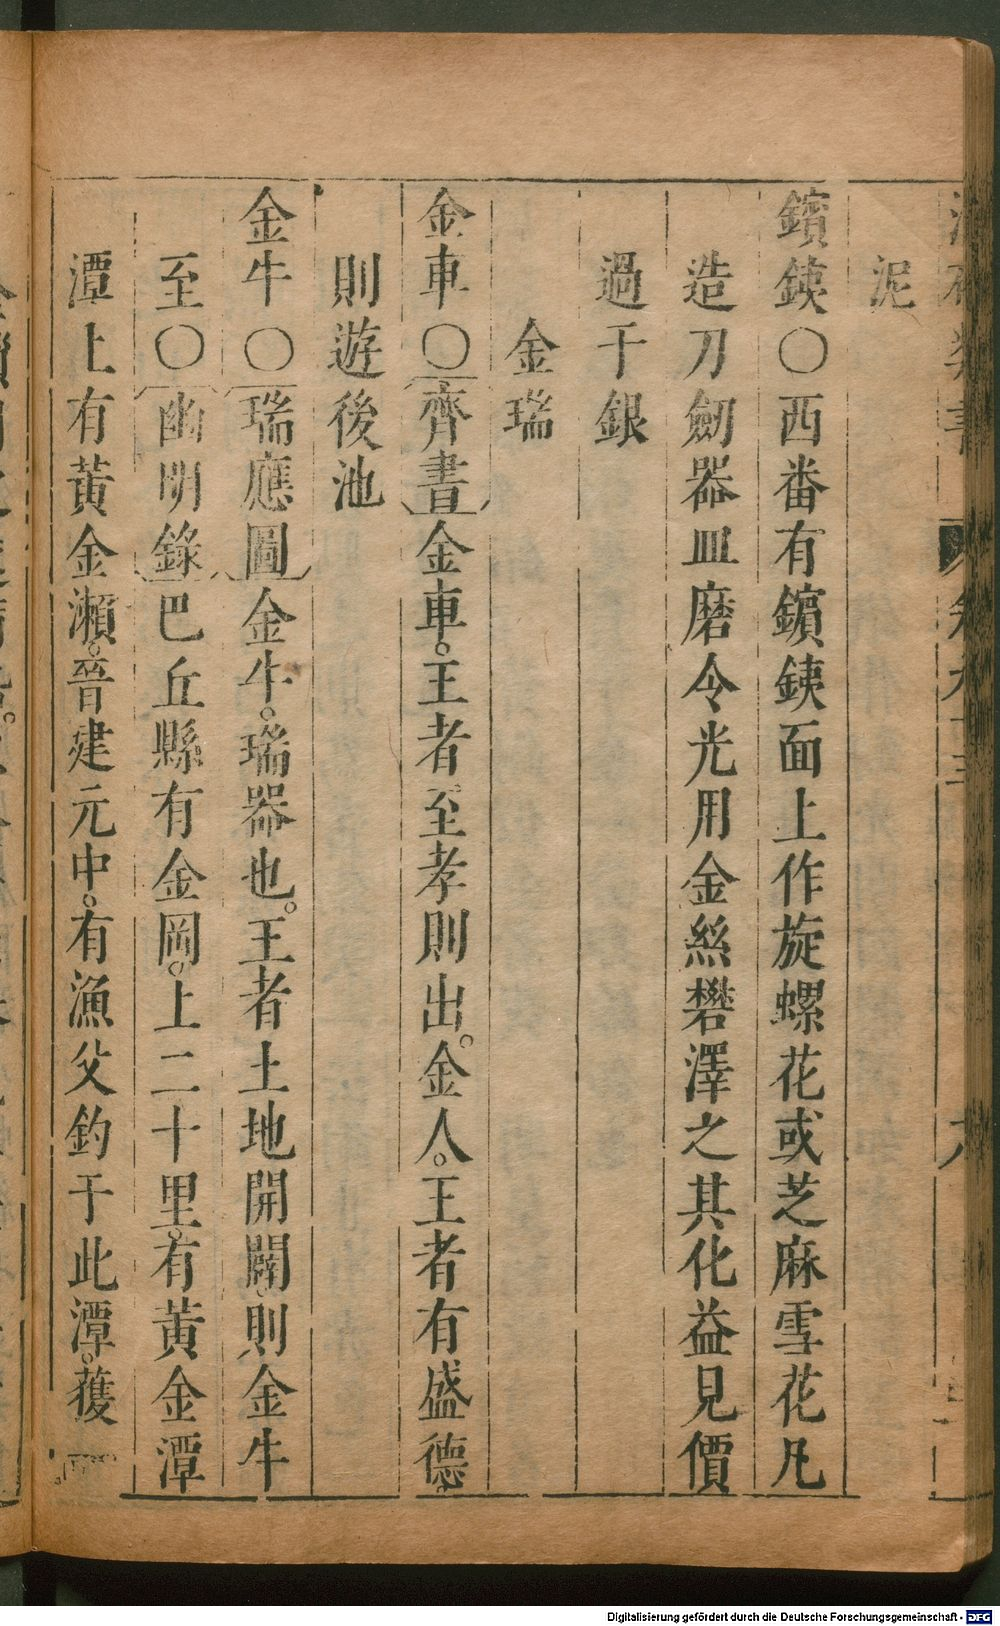 泥
鑌鐵〇西番有鑌鐵面上作旋螺花或芝麻雪花凡
造刀劒器皿磨令光用金絲礬澤之其化益見價
過于銀
金瑞
金車〇齊書金車。王者至孝則出。金人。王者有盛德
則遊後池
金牛〇瑞應圖金牛。瑞器也。王者土地開闢則金牛
至〇幽明錄巴丘縣有金岡。上二十里。有黃金潭
潭上有黃金瀨。晉建元中。有漁父釣于此潭。獲
Digitalisierung gefördert durch die Deutsche Forschungsgemeinschaft - DFG